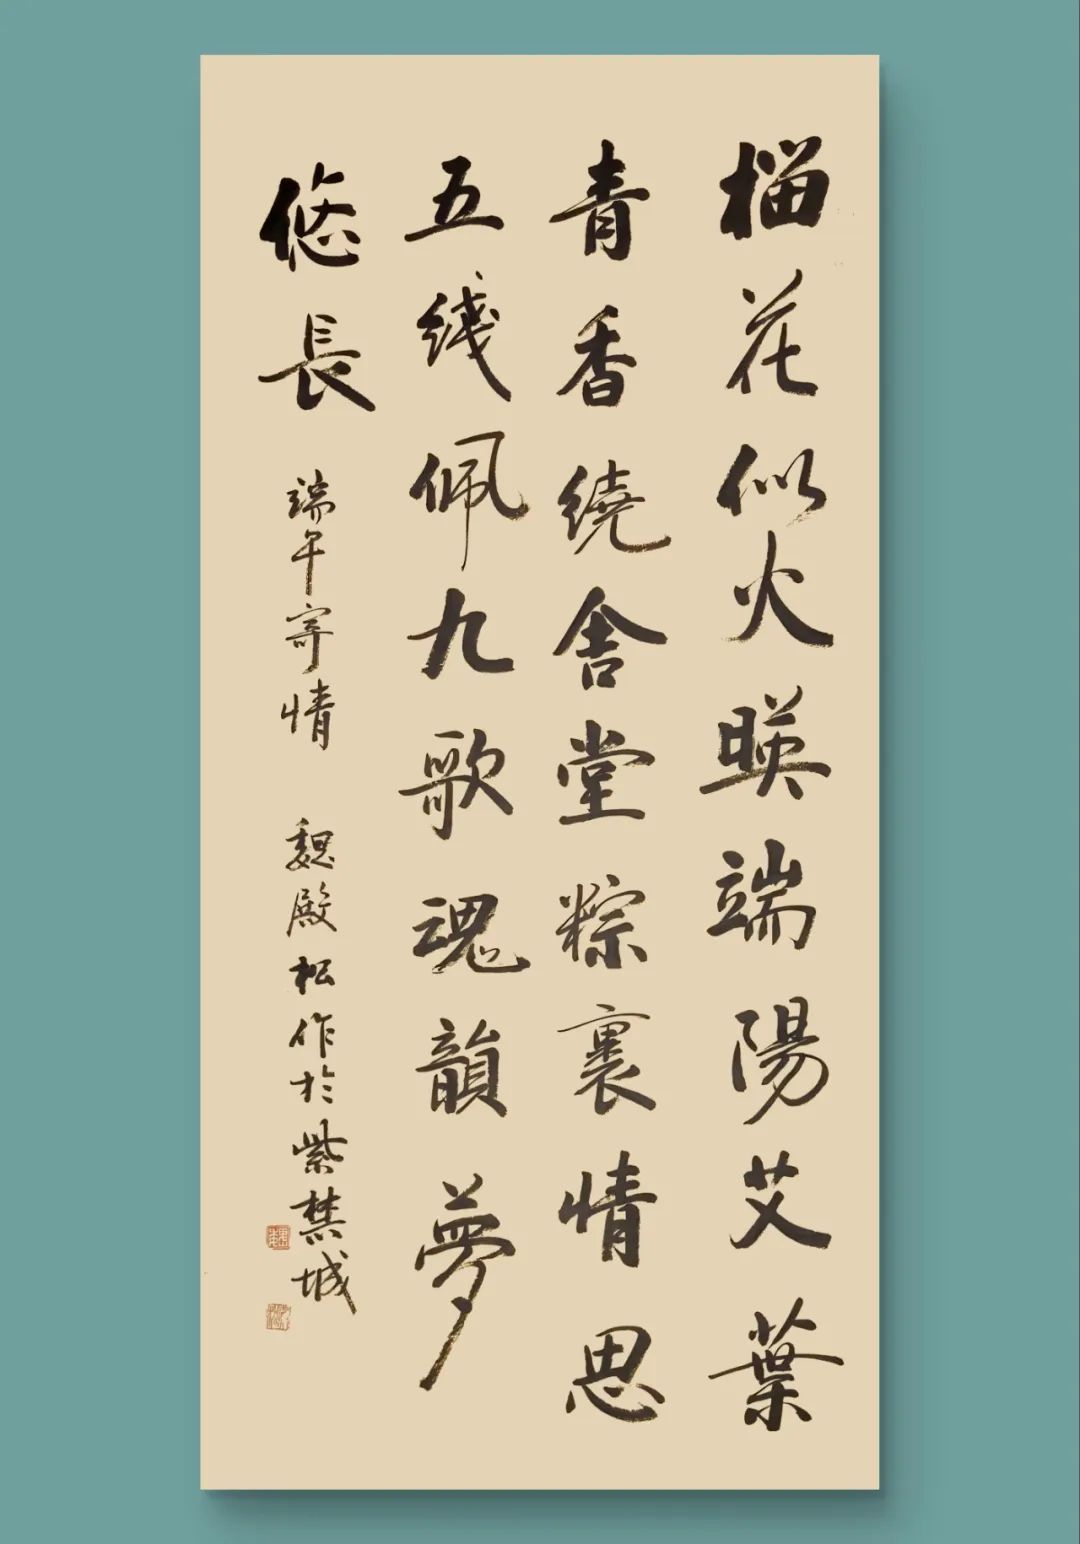 榴花似火映端陽艾葉
青香繞舍堂粽裹情思
五线佩九歌魂韻夢
悠長
端午寄情 魏殿松作於紫禁城